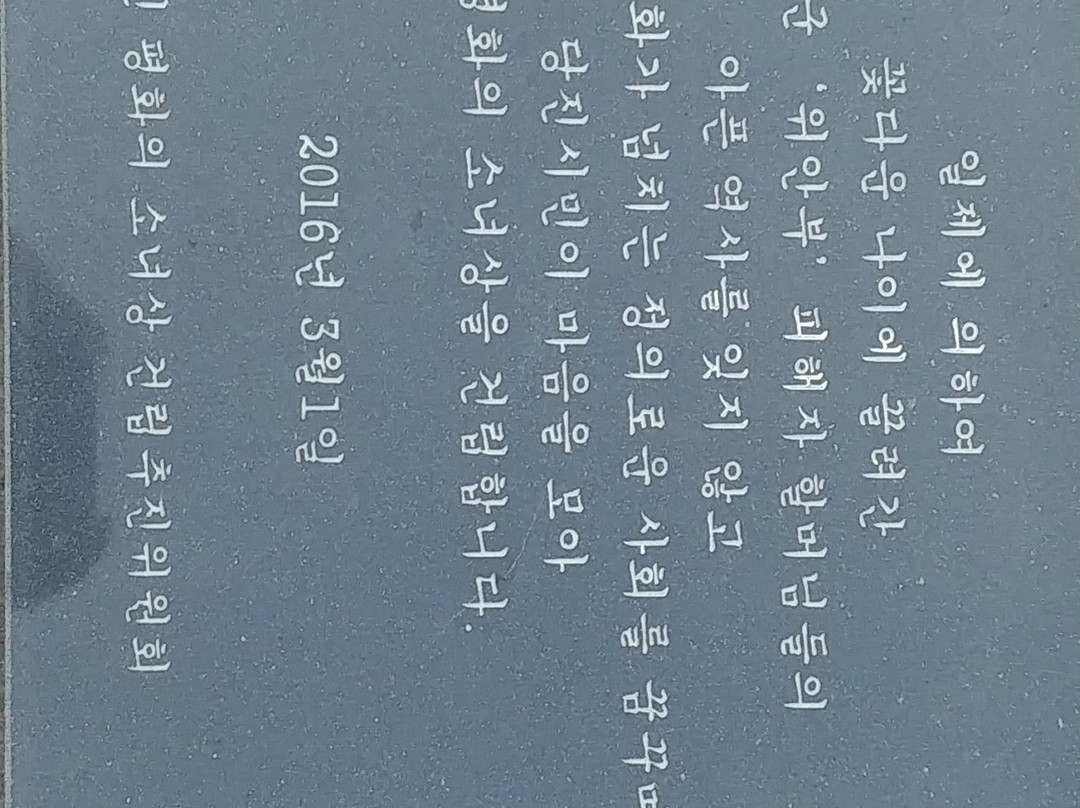 일제에 의하여
꽃다운 나이에 끌려간
'위안부' 피해자 할머님들의
아픈 역사를 잊지 않고
넘치는 정의로운 사회를 꿈꾸며
당진시민이 마음을 모아
평화의 소녀상을 건립합니다.
2016년 3월1일
평화의 소녀상 건립추진위원회